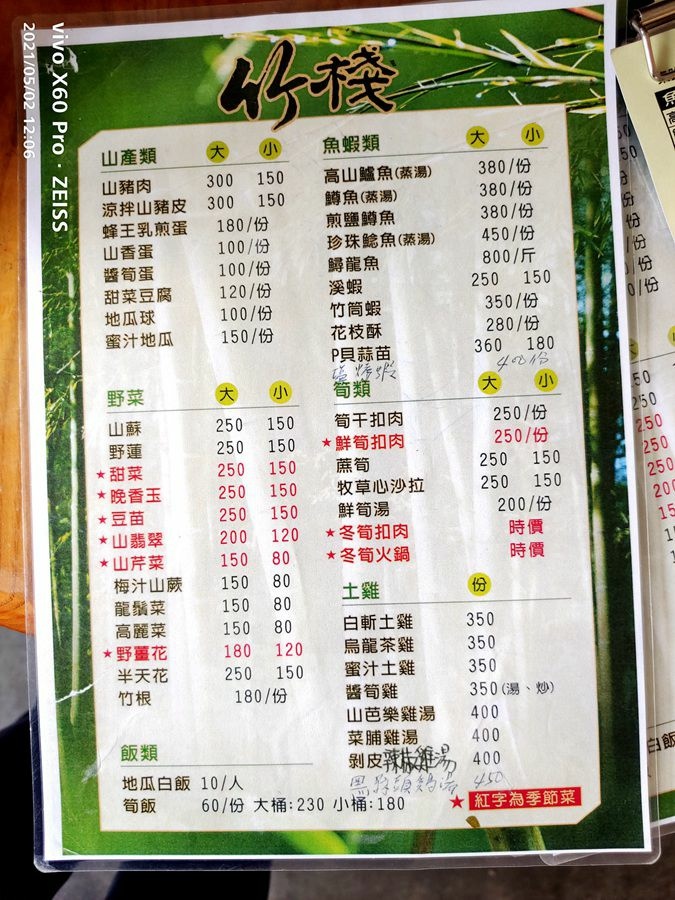 vivo X60 Pro · ZEISS
2021/05/02 12:06
竹棧
山產類 大 小
山豬肉 300 150
涼拌山豬皮 300 150
蜂王乳煎蛋 180/份
山香蛋 100/份
醬筍蛋 100/份
甜菜豆腐 120/份
地瓜球 100/份
蜜汁地瓜 150/份
野菜 大 小
山蘇 250 150
野蓮 250 150
★甜菜 250 150
★晚香玉 250 150
★豆苗 250 150
★山翡翠 200 120
★山芹菜 150 80
梅汁山蕨 150 80
龍鬚菜 150 80
高麗菜 150 80
★野薑花 180 120
半天花 250 150
竹根 180/份
飯類
地瓜白飯 10/人
筍飯 60/份 大桶:230 小桶:180
魚蝦類 大 小
高山鱸魚(蒸湯) 380/份
鱒魚(蒸湯) 380/份
煎鹽鱒魚 380/份
珍珠鯰魚(蒸湯) 450/份
鱘龍魚 800/斤
溪蝦 250 150
竹筒蝦 350/份
花枝酥 280/份
P貝蒜苗 360 180
400份
筍類 大 小
筍干扣肉 250/份
★鮮筍扣肉 250/份
蔗筍 250 150
牧草心沙拉 250 150
鮮筍湯 200/份
★冬筍扣肉 時價
★冬筍火鍋 時價
土雞 份
白斬土雞 350
烏龍茶雞 350
蜜汁土雞 350
醬筍雞 350(湯、炒)
山芭樂雞湯 400
菜脯雞湯 400
剝皮辣椒雞湯 400
450
★ 紅字為季節菜
白飯